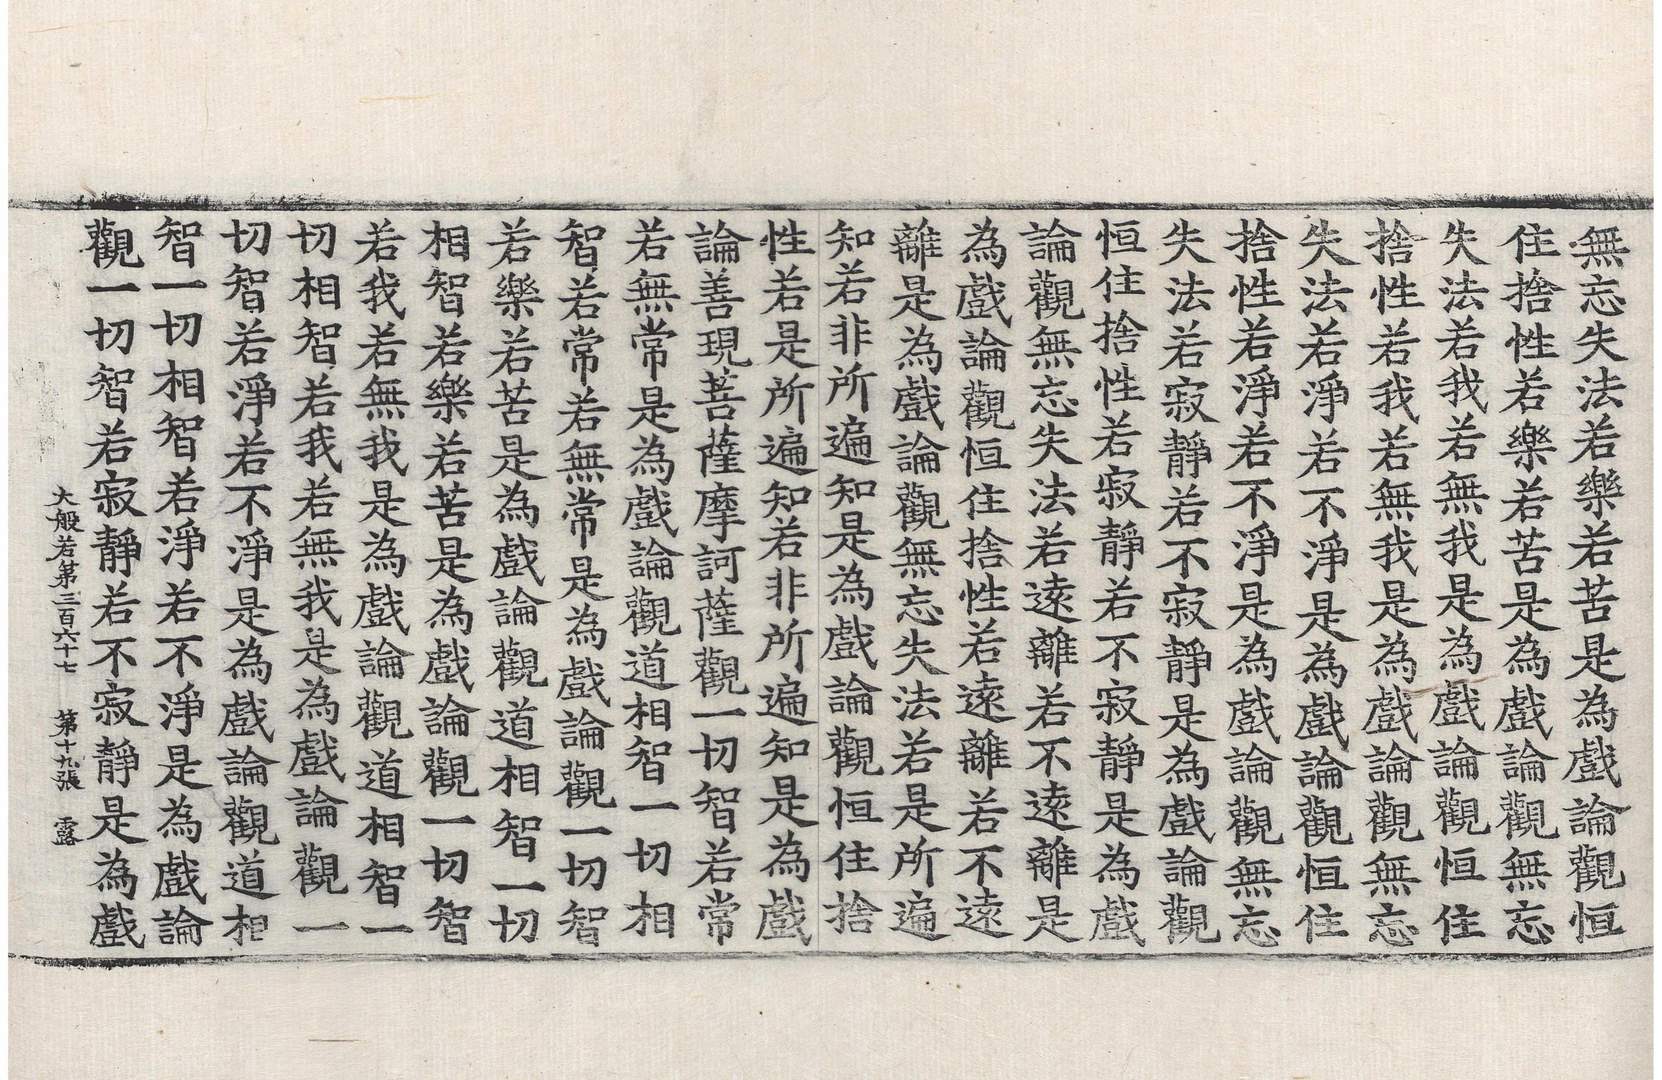 無忘失法若樂若苦是為戲論觀恒
住捨性若樂若苦是為戲論觀無忘
失法若我若無我是為戲論觀恒住
捨性若我若無我是為戲論觀無忘
失法若淨若不淨是為戲論觀恒住
捨性若淨若不淨是為戲論觀無忘
失法若寂靜若不寂靜是為戲論觀
恒住捨性若寂靜若不寂靜是為戲
論觀無忘失法若遠離若不遠離是
為戲論觀恒住捨性若遠離若不遠
離是為戲論觀無忘失法若是所遍
知若非所遍知是為戲論觀恒住捨
性若是所遍知若非所遍知是為戲
論善現菩薩摩訶薩觀一切智若常
若無常是為戲論觀道相智一切相
智若常若無常是為戲論觀一切智
若樂若苦是為戲論觀道相智一切
相智若樂若苦是為戲論觀一切智
若我若無我是為戲論觀道相智一
切相智若我若無我是為戲論觀一
切智若淨若不淨是為戲論觀道相
智一切相智若淨若不淨是為戲論
觀一切智若寂靜若不寂靜是為戲
大般若第三百六十七 第十九張 露